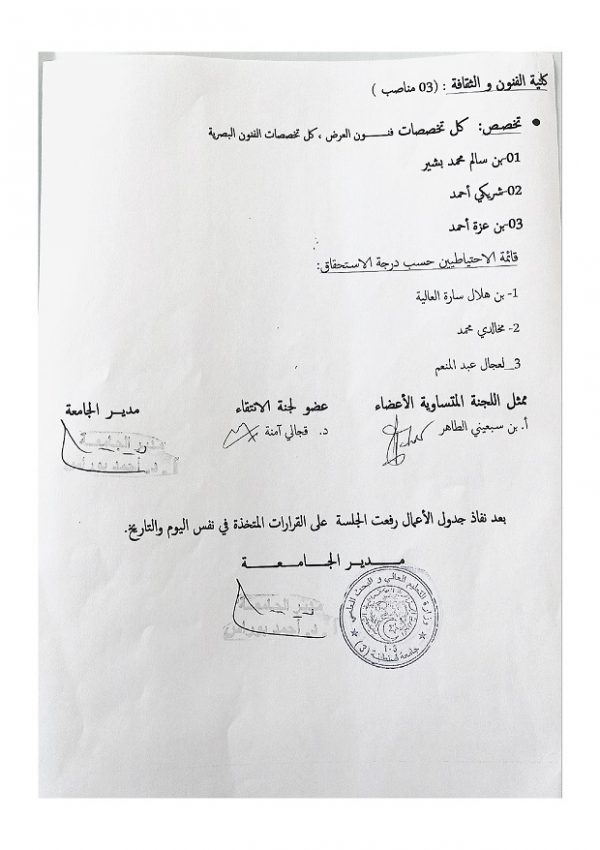 كلية الفنون و الثقافة : (03 مناصب )
• تخصص: كل تخصصات فنـــون العرض ، كل تخصصات الفنون البصرية
01-بن سالم محمد بشير
02-شريكي أحمد
03-بن عزة أحمد
قائمة الاحتياطيين حسب درجة الاستحقاق:
1- بن هلال سارة العالية
2- مخالدي محمد
3_ لعجال عبد المنعم
ممثل اللجنة المتساوية الأعضاء عضو لجنة الانتقاء مديـر الجامعة
أ. بن سبعيني الطاهر د. قجالي آمنة
مدير الجامعة
أ. د. أحمد بوراس
بعد نفاذ جدول الأعمال رفعت الجلسة على القرارات المتخذة في نفس اليوم والتاريخ.
مـــديـــر الجـــامـــعـــة
مدير الجامعة
أ.د. أحمد بوراس
وزارة التعليم العالي و البحث العلمي
جامعة قسنطينة (3)